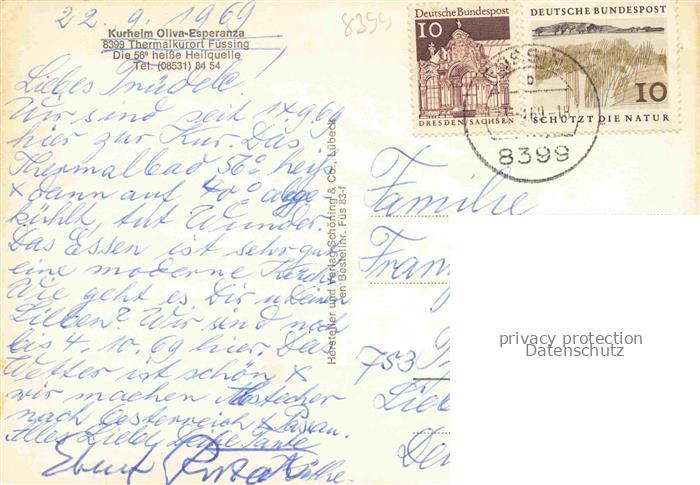 22.9.1969
8399
Kurheim Oliva-Esperanza
8399 Thermalkurort Füssing
Die 56° heiße Heilquelle
Tel. (08531) 84 54
Liebes
Wir sind seit 14.9.69
hier zur Kur. Das
Thermalbad 56° heiß
x dann auf 40° abge
kühlt tut Wunder.
Das Essen ist sehr gut
eine moderne Küche.
Wie geht es Dir u Deinen
Lieben? Wir sind noch
bis 4.10.69 hier. Das
Wetter ist schön x
wir machen Abstecher
nach Oesterreich & Passau.
Alles Liebe Deine Tante
Hersteller und Verlag Schöning & Co., Lübeck
en Bestellnr. Füs 83-f
Deutsche Bundespost
10
DRESDEN/SACHSEN
DEUTSCHE BUNDESPOST
10
SCHÜTZT DIE NATUR
8399
Familie
Fran
753
privacy protection
Datenschutz